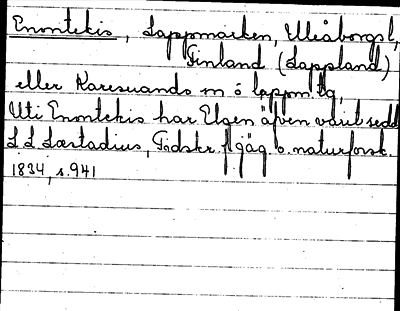 Enontekis, Lappmarken, Uleåborgsl,
Finland (Lappland)
eller Karesuando m ö lappm.
Uti Enontekis har Elgen äfven varit sedd
L L Læstadius, Tidskr. f jäg. o. naturforsk.
1834, s. 941